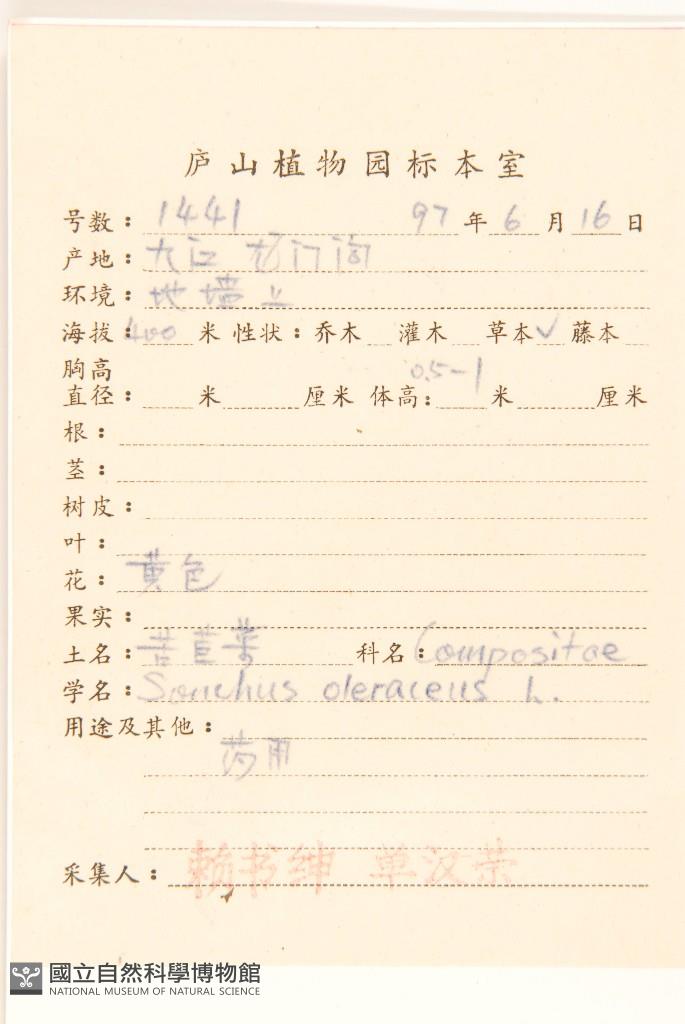 庐山植物园标本室
号数：1441 97年6月16日
产地：九江 龙门
环境：地 上
海拔：400 米 性状：乔木 灌木 草本✓ 藤本
胸高
直径： 米 厘米 体高：0.5-1 米 厘米
根：
茎：
树皮：
叶：
花：黄色
果实：
土名：苦苣菜 科名：Compositae
学名：Sonchus oleraceus L.
用途及其他：
药用
采集人：赖书绅 单汉荣
國立自然科學博物館
NATIONAL MUSEUM OF NATURAL SCIENCE